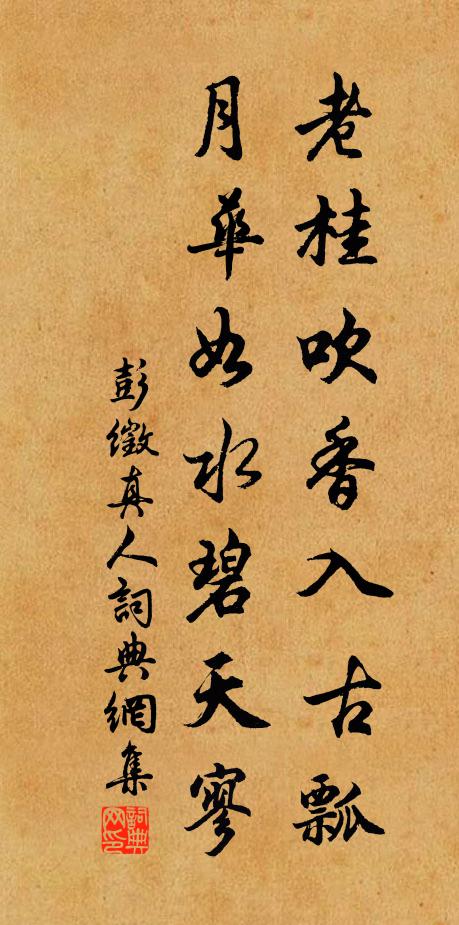 老桂吹香入古瓢
月華如水碧天寥
彭徵真人詞典網集
詞典網印